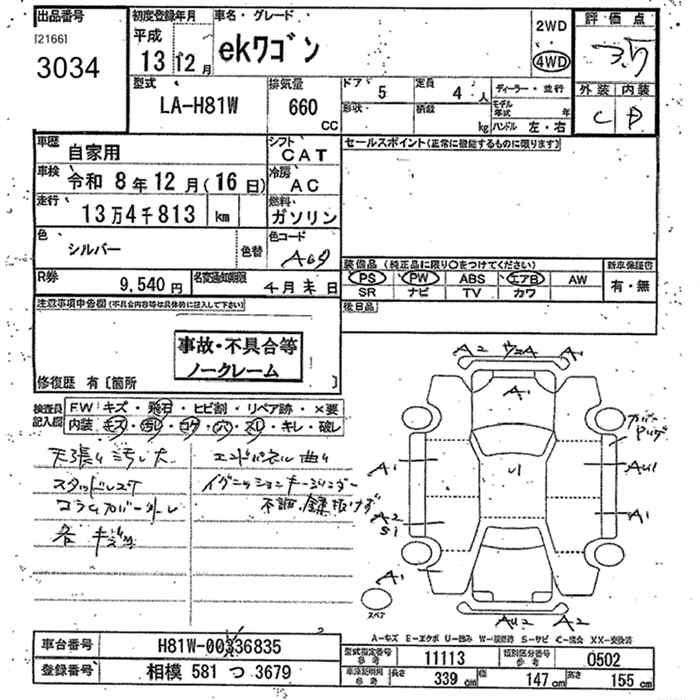 出品番号
[2166]
3034
初度登録年月
平成
13 12月
車名・グレード
ekワゴン
2WD
4WD
評価点
3.5
外装 内装
C D
型式
LA-H81W
排気量
660
CC
ドア 5
形状
定員 4 人
積載 kg
ディーラー・並行
モデル年式 年
ハンドル 左・右
車歴
自家用
シフト
CAT
セールスポイント(正常に機能するものに限ります)
車検
令和 8年12月(16日)
冷房
AC
走行
13万4千813 km
燃料
ガソリン
色
シルバー
色替
色コード
A69
装備品(純正品に限り○をつけてください)
PS PW ABS エアB AW
SR ナビ TV カワ
新車保証書
有・無
R券
9,540円
名変通知期限
4月末日
後日品
注意事項申告欄(不具合内容等は具体的に記入して下さい)
事故・不具合等
ノークレーム
修復歴 有[箇所 ]
検査員
記入欄
FW キズ・飛石・ヒビ割・リペア跡・×要
内装 キズ・汚レ・コゲ・穴・スレ・キレ・破レ
天張り汚れ大
エンドパネル曲り
スタッドレス
イグニッションキーシリンダー
コラムカバー外レ
不調、鍵抜けず
各キズ
A2 A1
A1
カバー
A1
AU1
A2
S1
A1
A1
スペア
AU2 A2
A-キズ E-エクボ U-凹み W-板修跡 S-サビ C-腐食 XX-交換済
車台番号
H81W-0036835
登録番号
相模 581 つ 3679
型式指定番号
参考
11113
類別区分番号
参考
0502
車漆証明用
参考
長さ 339 cm 幅 147 cm 高さ 155 cm